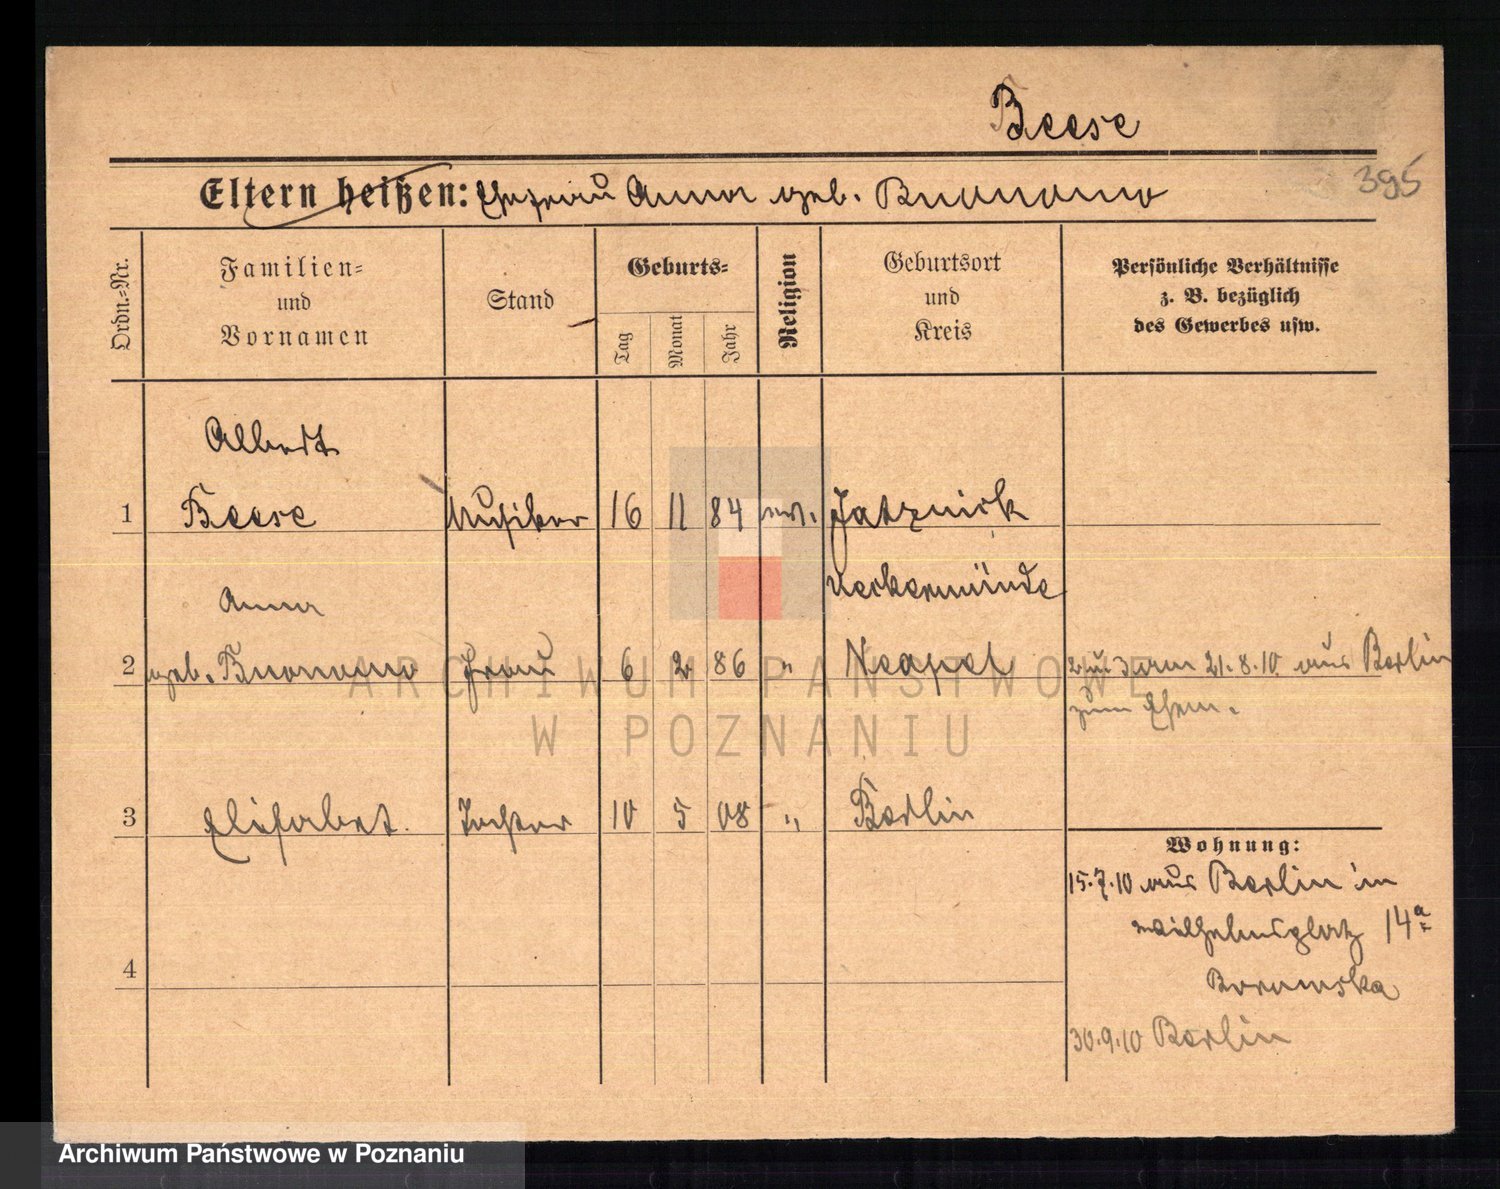 Beese
395
Eltern heißen: Ehefrau Anna geb. Buonomo
Ordn.-Nr.
Familien-
und
Vornamen
Stand
Geburts-
Tag
Monat
Jahr
Religion
Geburtsort
und
Kreis
Persönliche Verhältnisse
z. B. bezüglich
des Gewerbes usw.
Albert
1 Beese Musiker 16 11 84 Jatznick
Ueckermünde
Anna
2 geb. Buonomo Frau 6 2 86 " Neapel 2 u 3 am 21.8.10 aus Berlin
zum Ehem.
3 Elisabet. Tochter 10 5 08 " Berlin
Wohnung:
15.7.10 aus Berlin in
Wilhelmsplatz 14a
4
30.9.10 Berlin
ARCHIWUM PAŃSTWOWE
W POZNANIU
Archiwum Państwowe w Poznaniu